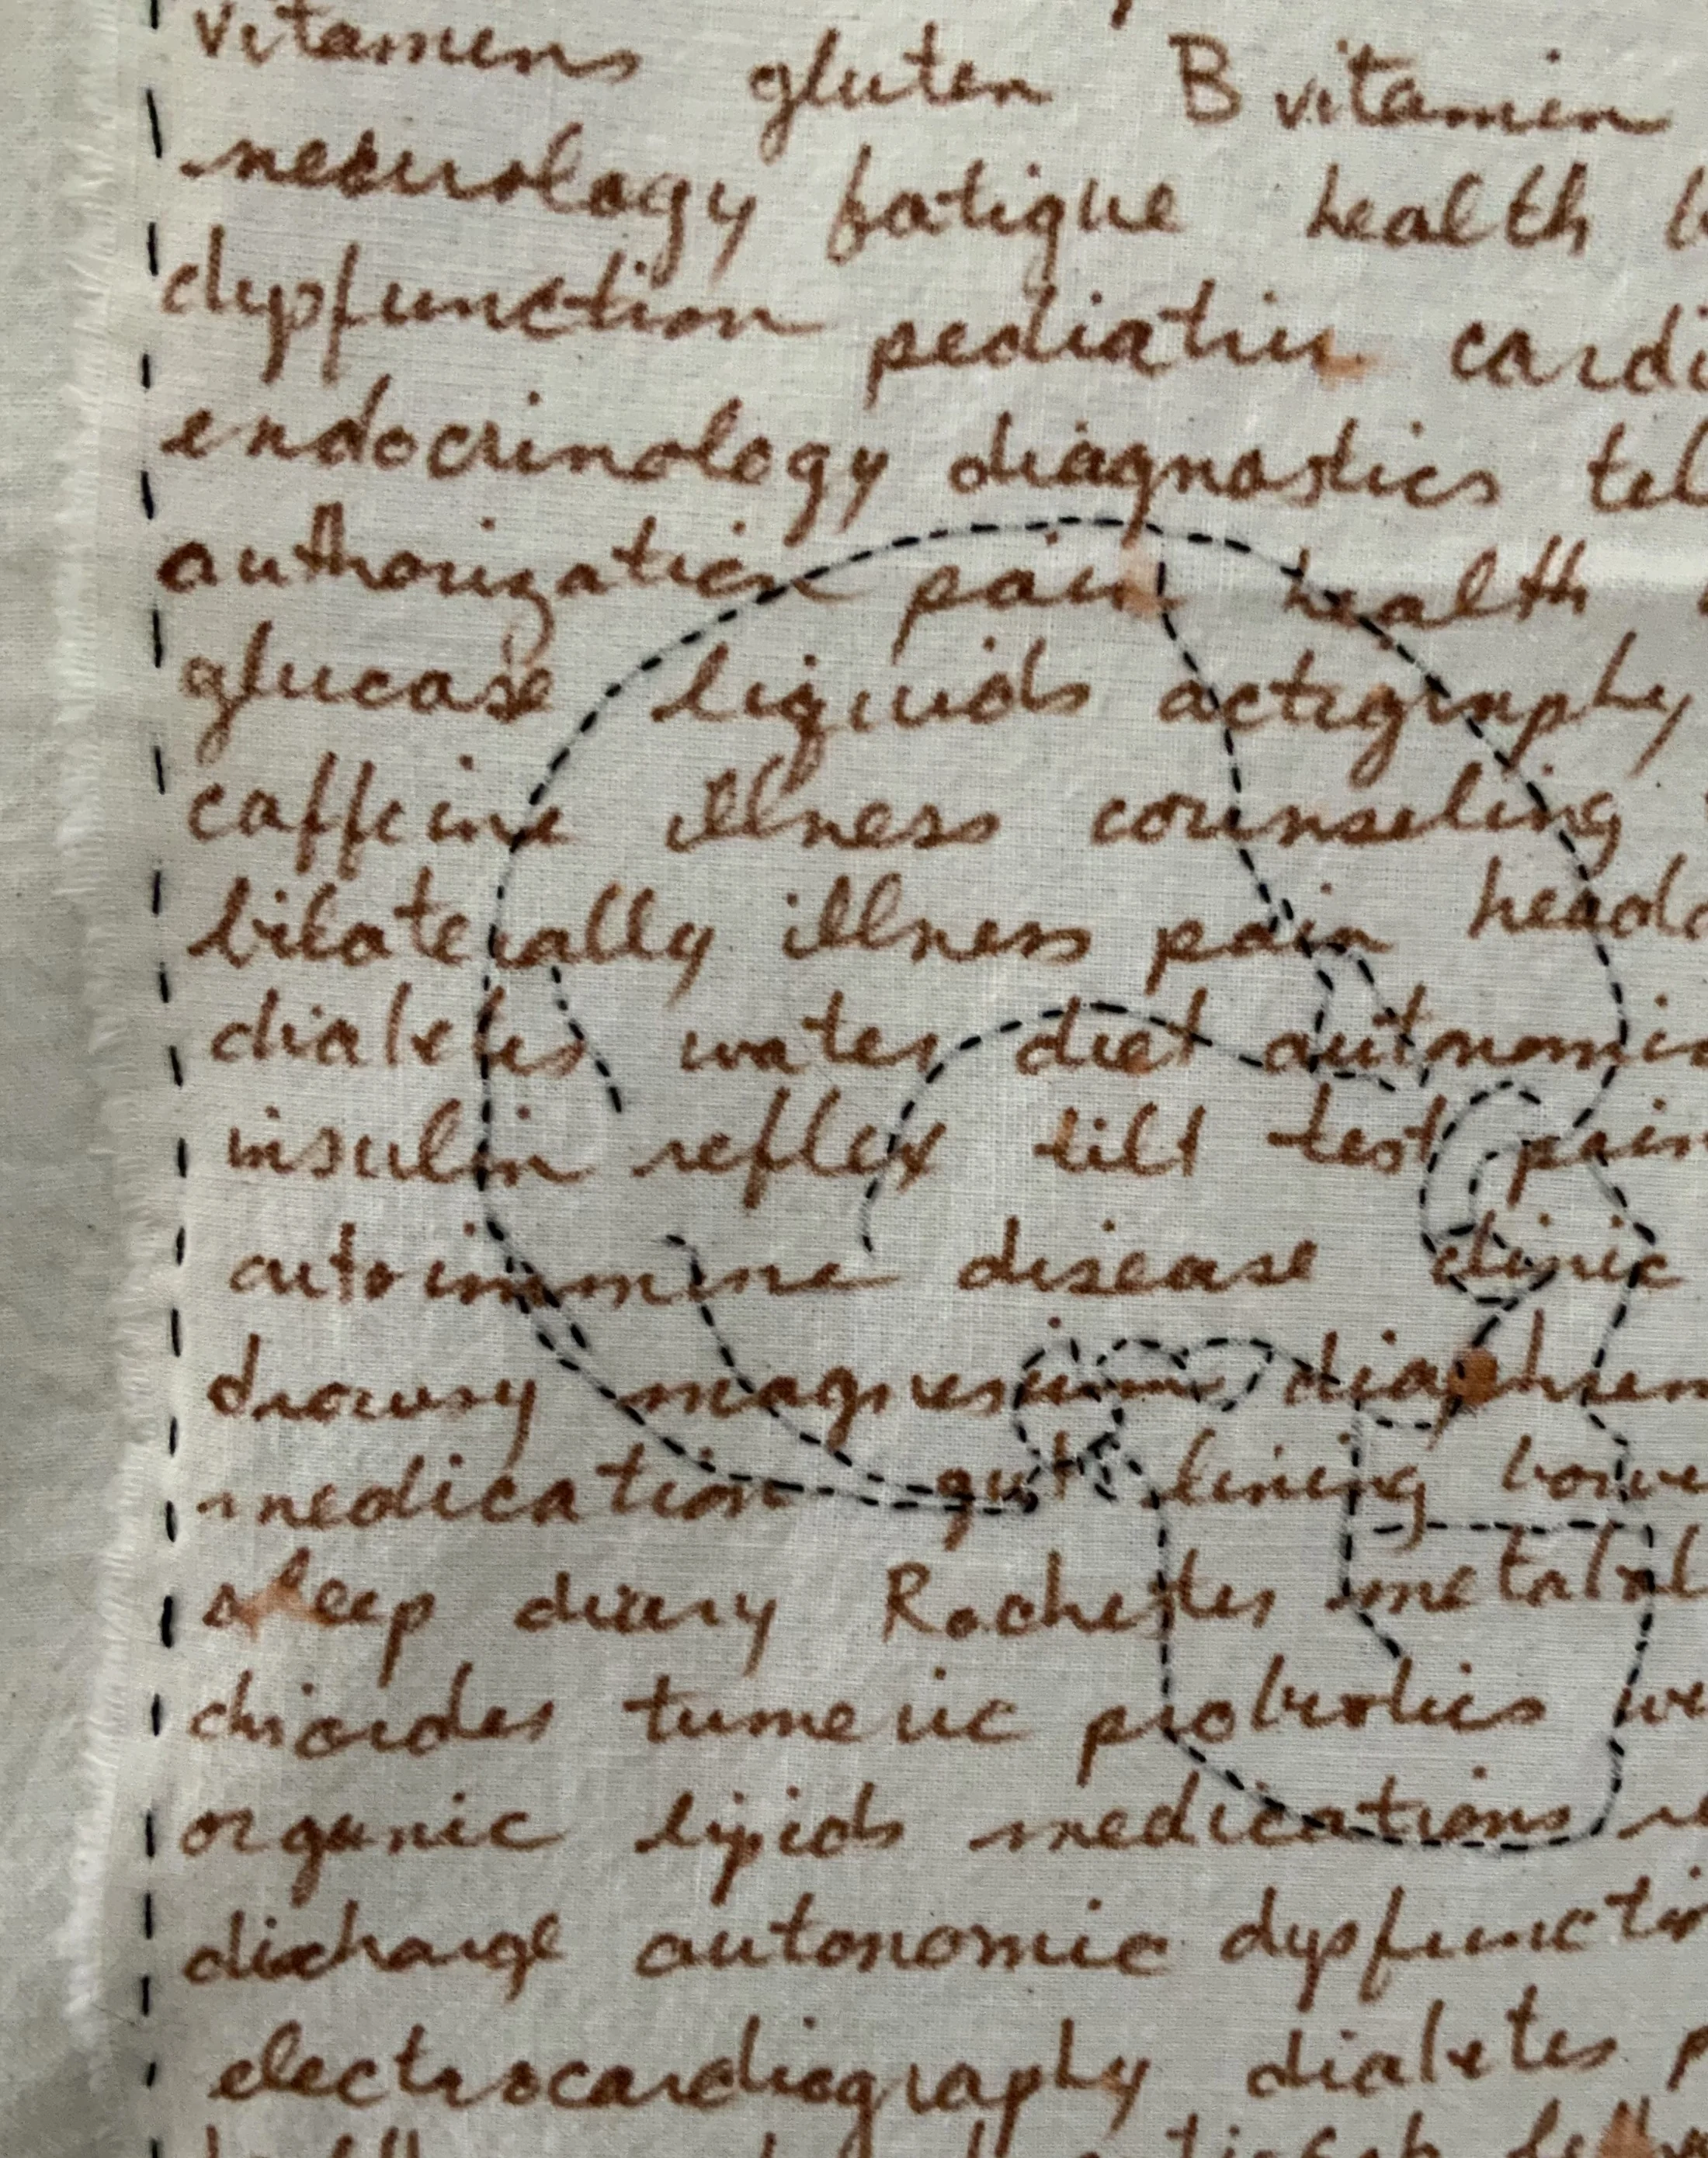 vitamins gluten B vitamin
neurology fatigue health
dysfunction pediatric cardi
endocrinology diagnostics tel
authorization pain health
glucose liquids actigraphy
caffeine illness counseling
bilaterally illness pain heada
diabetes water diet autonomic
insulin reflex tilt test pain
autoimmune disease clinic
drowsy magnesium
medication gut lining bowe
sleep diary Rochester metabol
tumeric probiotics we
organic lipids medications
discharge autonomic dysfunction
electrocardiography diabetes p